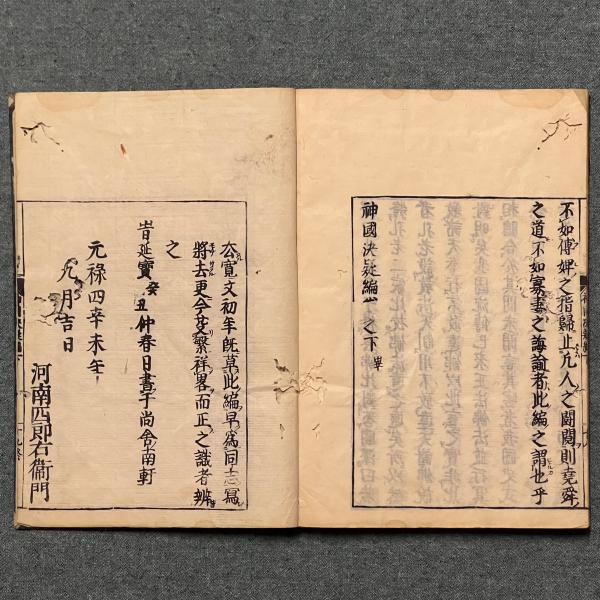 不如傅婢之指歸止九人之鬪鬩則堯舜
之道不如寡妻之誨諭者此編之謂也乎
神國決疑編 之下畢
厺寛文初年既草此編早爲同志寫
將去更今芟繁祥畧而正之識者辨
之
旹延寶癸丑仲春日書于尚令南軒
元禄四辛未年
九月吉日
河南四郎右衞門